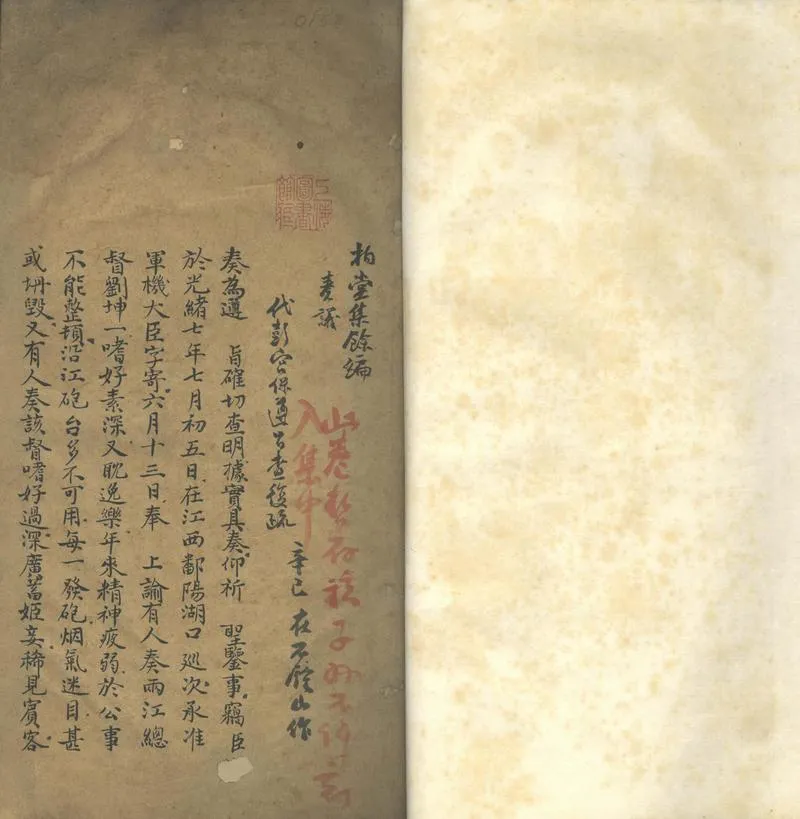 上海圖書館藏
柏堂集餘編
奏議
此卷暫存
入集中
代彭宮保遵旨查復疏 辛巳 在石鐘山作
奏為遵 旨確切查明據實具奏仰祈 聖鑒事竊臣
於光緒七年七月初五日在江西鄱陽湖口巡次承准
軍機大臣字寄六月十三日奉 上諭有人奏兩江總
督劉坤一嗜好素深又耽逸樂年來精神疲弱於公事
不能整頓沿江砲台多不可用每一發砲烟氣迷目甚
或坍毀又有人奏該督嗜好過深廣蓄姬妾稀見賓客